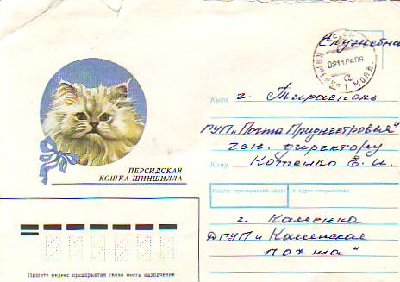 Служебное
Куда г. Тирасполь
РУП „Почта Приднестровья"
ген. директору
Кому Котенко Е. И.
ПЕРСИДСКАЯ
КОШКА ШИНШИЛЛА
г. Каменка
ДГУП „Каменская
почта"
Пишите индекс предприятия связи места назначения